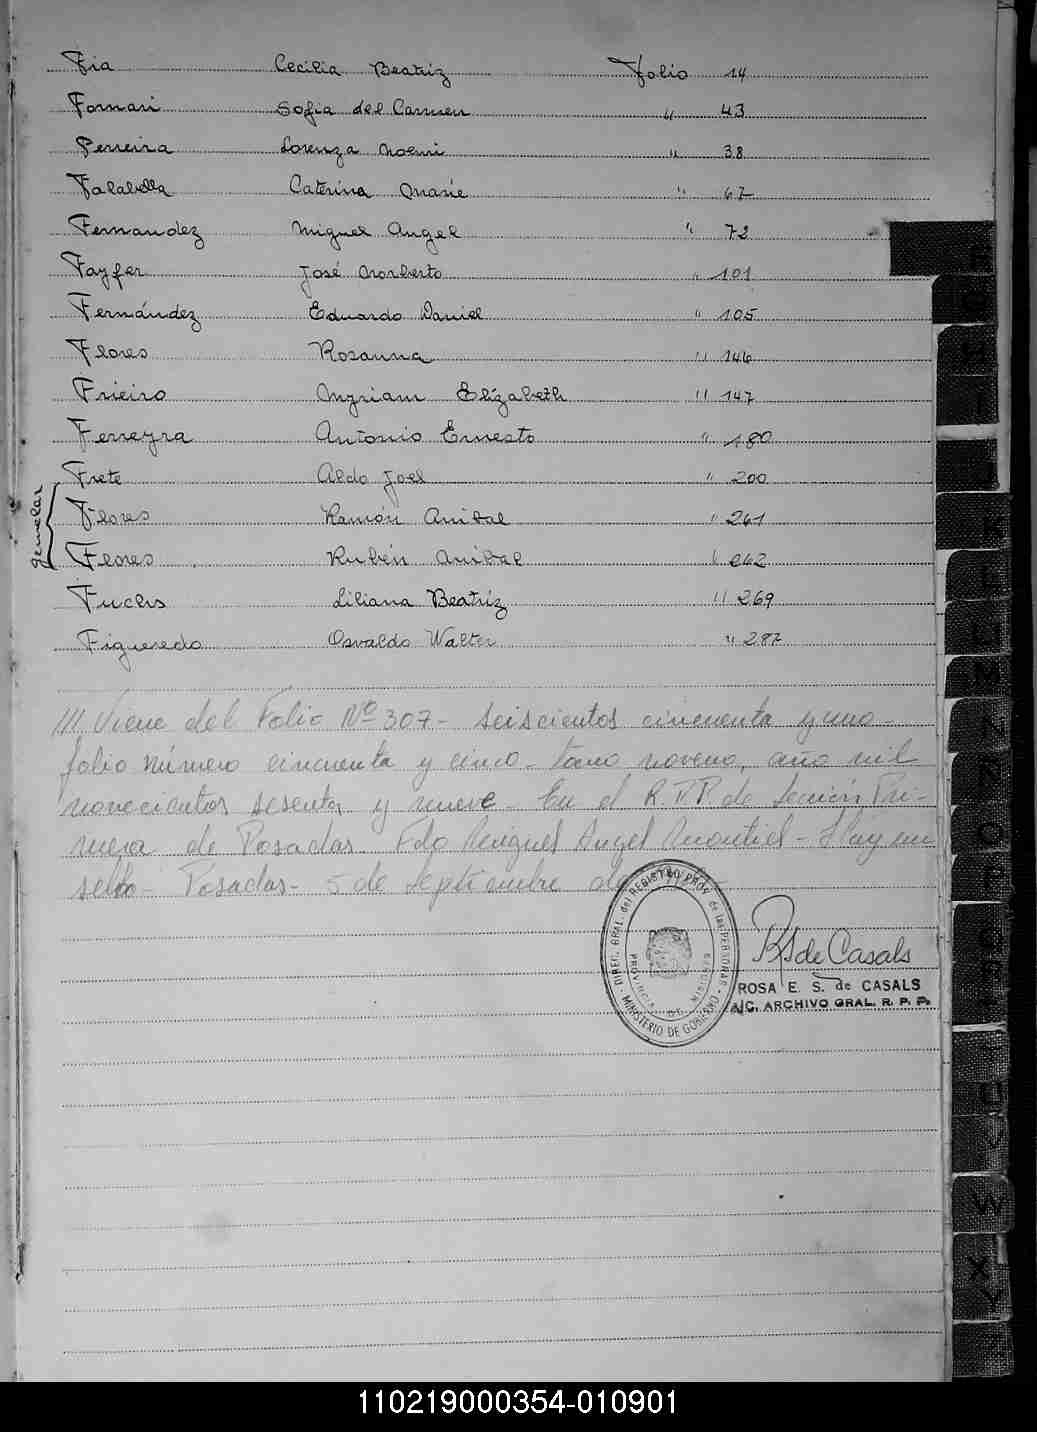 Fia Cecilia Beatriz Folio 14
Fornari Sofia del Carmen " 43
Ferreira Lorenza Noemi " 38
Falabella Caterina Marie " 67
Fernandez Miguel Angel " 72
Fayfer José Norberto " 101
Fernández Eduardo Daniel " 105
Flores Rosanna " 146
Frieiro Myriam Elizabeth " 147
Ferreyra Antonio Ernesto " 180
Frete Aldo Joel " 200
gemelos
Flores Ramón Anibal " 261
Flores Rubén Anibal " 262
Fuchs Liliana Beatriz " 269
Figueredo Osvaldo Walter " 287
/// Viene del Folio Nº 307- seiscientos cincuenta y uno-
folio número cincuenta y cinco- tomo noveno, año mil
novecientos sesenta y nueve- En el R.P.P. de Sección Pri-
mera de Posadas. Fdo Miguel Angel Montiel- Hay un
sello- Posadas- 5 de Septiembre de
DIREC. GRAL. del REGISTRO PROV. de las PERSONAS
PROVINCIA DE MISIONES
MINISTERIO DE GOBIERNO
RS de Casals
ROSA E. S. de CASALS
A/C. ARCHIVO GRAL. R. P. P.
F
G
H
I
J
K
L
M
N
Ñ
O
P
W
X
Y
110219000354-010901